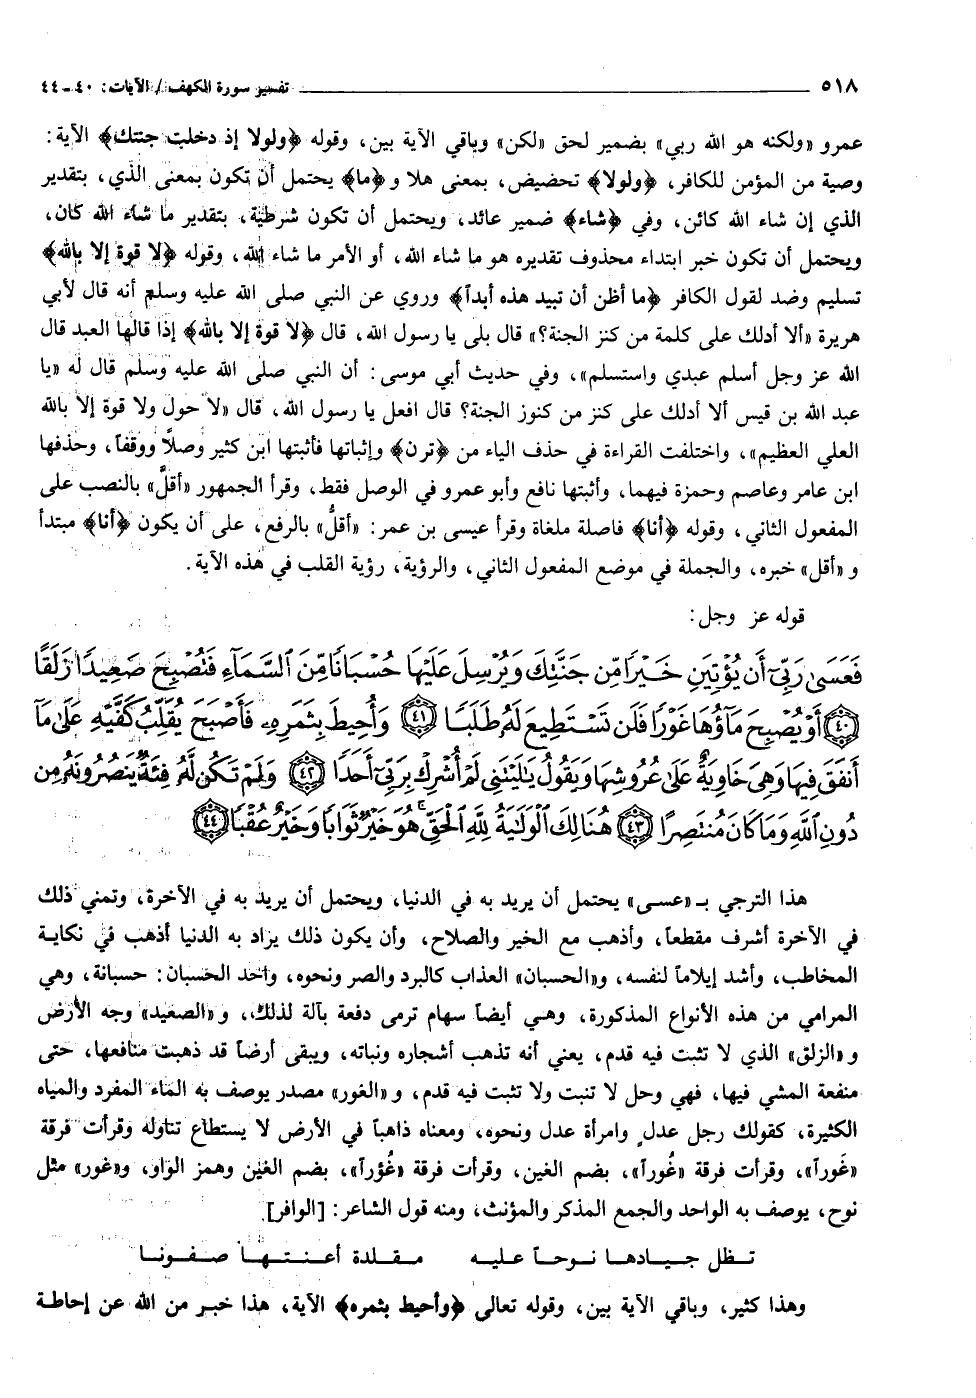 ٥١٨ ــــــــــــــــــــ تفسير سورة الكهف / الآيات: ٤٠ ـ ٤٤
عمرو «ولكنه هو الله ربي» بضمير لحق «لكن» وباقي الآية بين، وقوله ﴿ولولا إذ دخلت جنتك﴾ الآية:
وصية من المؤمن للكافر، ﴿ولولا﴾ تحضيض، بمعنى هلا و﴿ما﴾ يحتمل أن تكون بمعنى الذي، بتقدير
الذي إن شاء الله كائن، وفي ﴿شاء﴾ ضمير عائد، ويحتمل أن تكون شرطية، بتقدير ما شاء الله كان،
ويحتمل أن تكون خبر ابتداء محذوف تقديره هو ما شاء الله، أو الأمر ما شاء الله، وقوله ﴿لا قوة إلا بالله﴾
تسليم وضد لقول الكافر ﴿ما أظن أن تبيد هذه أبداً﴾ وروي عن النبي صلى الله عليه وسلم أنه قال لأبي
هريرة «ألا أدلك على كلمة من كنز الجنة؟» قال بلى يا رسول الله، قال ﴿لا قوة إلا بالله﴾ إذا قالها العبد قال
الله عز وجل أسلم عبدي واستسلم»، وفي حديث أبي موسى: أن النبي صلى الله عليه وسلم قال له «يا
عبد الله بن قيس ألا أدلك على كنز من كنوز الجنة؟ قال افعل يا رسول الله، قال «لا حول ولا قوة إلا بالله
العلي العظيم»، واختلفت القراءة في حذف الياء من ﴿ترن﴾ وإثباتها فأثبتها ابن كثير وصلاً ووقفاً، وحذفها
ابن عامر وعاصم وحمزة فيهما، وأثبتها نافع وأبو عمرو في الوصل فقط، وقرأ الجمهور «أقلَّ» بالنصب على
المفعول الثاني، وقوله ﴿أنا﴾ فاصلة ملغاة وقرأ عيسى بن عمر: «أقلُّ» بالرفع، على أن يكون ﴿أنا﴾ مبتدأ
و «أقل» خبره، والجملة في موضع المفعول الثاني، والرؤية، رؤية القلب في هذه الآية.
قوله عز وجل:
فَعَسَىٰ رَبِّىٓ أَن يُؤْتِيَنِ خَيْرًا مِّن جَنَّتِكَ وَيُرْسِلَ عَلَيْهَا حُسْبَانًا مِّنَ ٱلسَّمَآءِ فَتُصْبِحَ صَعِيدًا زَلَقًا
﴿٤٠﴾ أَوْ يُصْبِحَ مَآؤُهَا غَوْرًا فَلَن تَسْتَطِيعَ لَهُۥ طَلَبًا ﴿٤١﴾ وَأُحِيطَ بِثَمَرِهِۦ فَأَصْبَحَ يُقَلِّبُ كَفَّيْهِ عَلَىٰ مَآ
أَنفَقَ فِيهَا وَهِىَ خَاوِيَةٌ عَلَىٰ عُرُوشِهَا وَيَقُولُ يَٰلَيْتَنِى لَمْ أُشْرِكْ بِرَبِّىٓ أَحَدًا ﴿٤٢﴾ وَلَمْ تَكُن لَّهُۥ فِئَةٌ يَنصُرُونَهُۥ مِن
دُونِ ٱللَّهِ وَمَا كَانَ مُنتَصِرًا ﴿٤٣﴾ هُنَالِكَ ٱلْوَلَٰيَةُ لِلَّهِ ٱلْحَقِّ هُوَ خَيْرٌ ثَوَابًا وَخَيْرٌ عُقْبًا ﴿٤٤﴾
هذا الترجي بـ «عسى» يحتمل أن يريد به في الدنيا، ويحتمل أن يريد به في الآخرة، وتمني ذلك
في الآخرة أشرف مقطعاً، وأذهب مع الخير والصلاح، وأن يكون ذلك يراد به الدنيا أذهب في نكاية
المخاطب، وأشد إيلاماً لنفسه، و«الحسبان» العذاب كالبرد والصر ونحوه، واحد الحسبان: حسبانة، وهي
المرامي من هذه الأنواع المذكورة، وهي أيضاً سهام ترمى دفعة بآلة لذلك، و«الصعيد» وجه الأرض
و «الزلق» الذي لا تثبت فيه قدم، يعني أنه تذهب أشجاره ونباته، ويبقى أرضاً قد ذهبت منافعها، حتى
منفعة المشي فيها، فهي وحل لا تنبت ولا تثبت فيه قدم، و«الغور» مصدر يوصف به الماء المفرد والمياه
الكثيرة، كقولك رجل عدل وامرأة عدل ونحوه، ومعناه ذاهباً في الأرض لا يستطاع تناوله وقرأت فرقة
«غَوراً»، وقرأت فرقة «غُوراً»، بضم الغين، وقرأت فرقة «غُؤراً»، بضم الغين وهمز الواو، و«غور» مثل
نوح، يوصف به الواحد والجمع المذكر والمؤنث، ومنه قول الشاعر: [الوافر]
تظل جيادها نوحاً عليه    مقلدة أعنتها صفونا
وهذا كثير، وباقي الآية بين، وقوله تعالى ﴿وأحيط بثمره﴾ الآية، هذا خبر من الله عن إحاطة